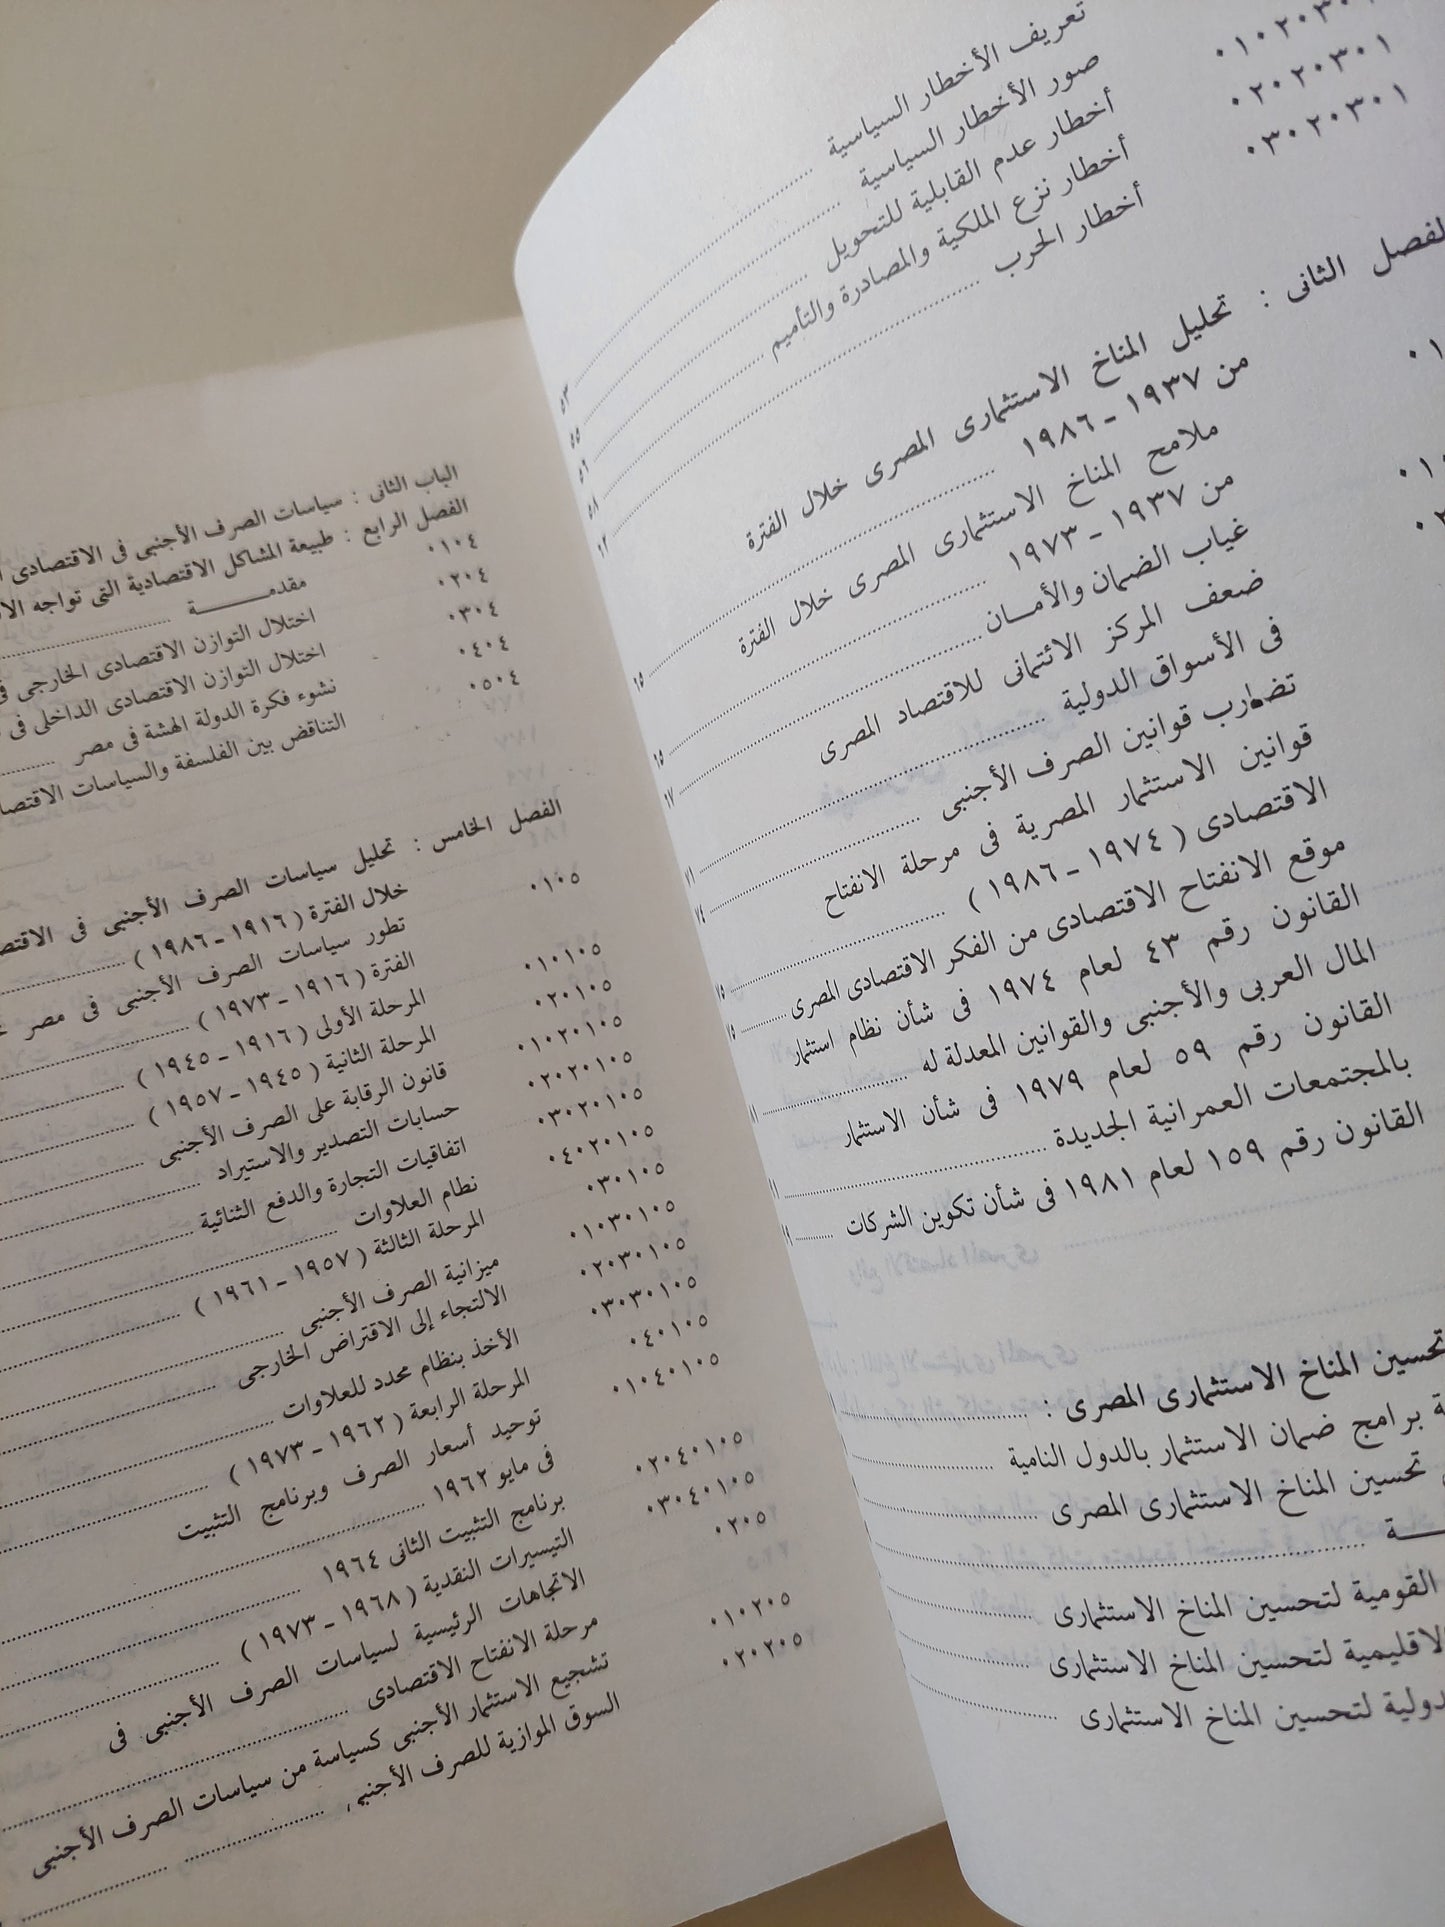 تعريف الأخطار السياسية
صور الأخطار السياسية
٠٢٠٢٠٣٠١ أخطار عدم القابلية للتحويل
٠٣٠٢٠٣٠١ أخطار نزع الملكية والمصادرة والتأميم
أخطار الحرب
الفصل الثانى : تحليل المناخ الاستثمارى المصرى خلال الفترة
من ١٩٣٧ - ١٩٨٦
ملامح المناخ الاستثمارى المصرى خلال الفترة
من ١٩٣٧ - ١٩٧٣
غياب الضمان والأمـان
ضعف المركز الائتمانى للاقتصاد المصرى
فى الأسواق الدولية
تضارب قوانين الصرف الأجنبى
قوانين الاستثمار المصرية فى مرحلة الانفتاح
الاقتصادى ( ١٩٧٤ - ١٩٨٦ )
موقع الانفتاح الاقتصادى من الفكر الاقتصادى المصرى
القانون رقم ٤٣ لعام ١٩٧٤ فى شأن نظام استثمار
المال العربى والأجنبى والقوانين المعدلة له
القانون رقم ٥٩ لعام ١٩٧٩ فى شأن الاستثمار
بالمجتمعات العمرانية الجديدة
القانون رقم ١٥٩ لعام ١٩٨١ فى شأن تكوين الشركات
تحسين المناخ الاستثمارى المصرى :
برامج ضمان الاستثمار بالدول النامية
تحسين المناخ الاستثمارى المصرى
القومية لتحسين المناخ الاستثمارى
الاقليمية لتحسين المناخ الاستثمارى
لتحسين المناخ الاستثمارى
الباب الثانى : سياسات الصرف الأجنبى فى الاقتصادى
الفصل الرابع : طبيعة المشاكل الاقتصادية التى تواجه
٠١٠٤ مقدمـــــة
٠٢٠٤ اختلال التوازن الاقتصادى الخارجى
٠٣٠٤ اختلال التوازن الاقتصادى الداخلى فى
٠٤٠٤ نشوء فكرة الدولة الهشة فى مصر
٠٥٠٤ التناقض بين الفلسفة والسياسات
الفصل الخامس : تحليل سياسات الصرف الأجنبى فى
خلال الفترة ( ١٩١٦ - ١٩٨٦ )
٠١٠٥ تطور سياسات الصرف الأجنبى فى مصر
الفترة ( ١٩١٦ - ١٩٧٣ )
٠١٠١٠٥ المرحلة الأولى ( ١٩١٦ - ١٩٤٥ )
٠٢٠١٠٥ المرحلة الثانية ( ١٩٤٥ - ١٩٥٧ )
٠١٠٢٠١٠٥ قانون الرقابة على الصرف الأجنبى
٠٢٠٢٠١٠٥ حسابات التصدير والاستيراد
٠٣٠٢٠١٠٥ اتفاقيات التجارة والدفع الثنائية
٠٤٠٢٠١٠٥ نظام العلاوات
٠٣٠١٠٥ المرحلة الثالثة ( ١٩٥٧ - ١٩٦١ )
٠١٠٣٠١٠٥ ميزانية الصرف الأجنبى
٠٢٠٣٠١٠٥ الالتجاء إلى الاقتراض الخارجى
٠٣٠٣٠١٠٥ الأخذ بنظام محدد للعلاوات
٠٤٠١٠٥ المرحلة الرابعة ( ١٩٦٢ - ١٩٧٣ )
٠١٠٤٠١٠٥ توحيد أسعار الصرف وبرنامج التثبيت
فى مايو ١٩٦٢
٠٢٠٤٠١٠٥ برنامج التثبيت الثانى ١٩٦٤
٠٣٠٤٠١٠٥ التيسيرات النقدية ( ١٩٦٨ - ١٩٧٣ )
٠٢٠٥ الاتجاهات الرئيسية لسياسات الصرف الأجنبى فى
مرحلة الانفتاح الاقتصادى
٠١٠٢٠٥ تشجيع الاستثمار الأجنبى كسياسة من سياسات الصرف الأجنبى
٠٢٠٢٠٥ السوق الموازية للصرف الأجنبى